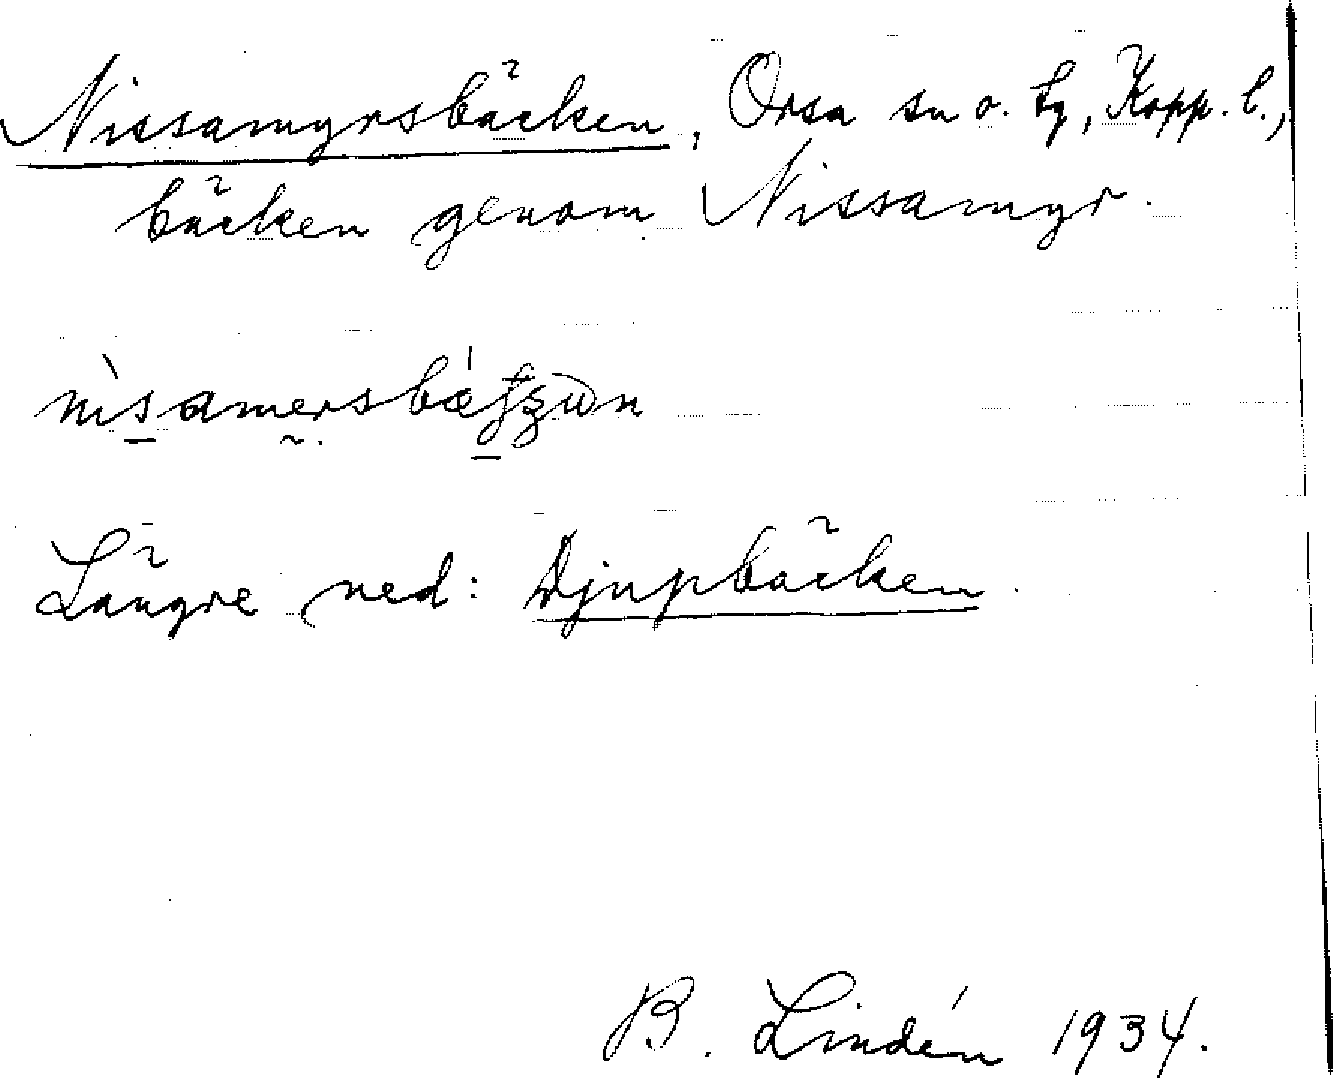 Nissamyrsbäcken, Orsa sn o. tg, Kopp. l.,
bäcken genom Nissamyr.
Längre ned: Djupbäcken.
B. Lindén 1934.